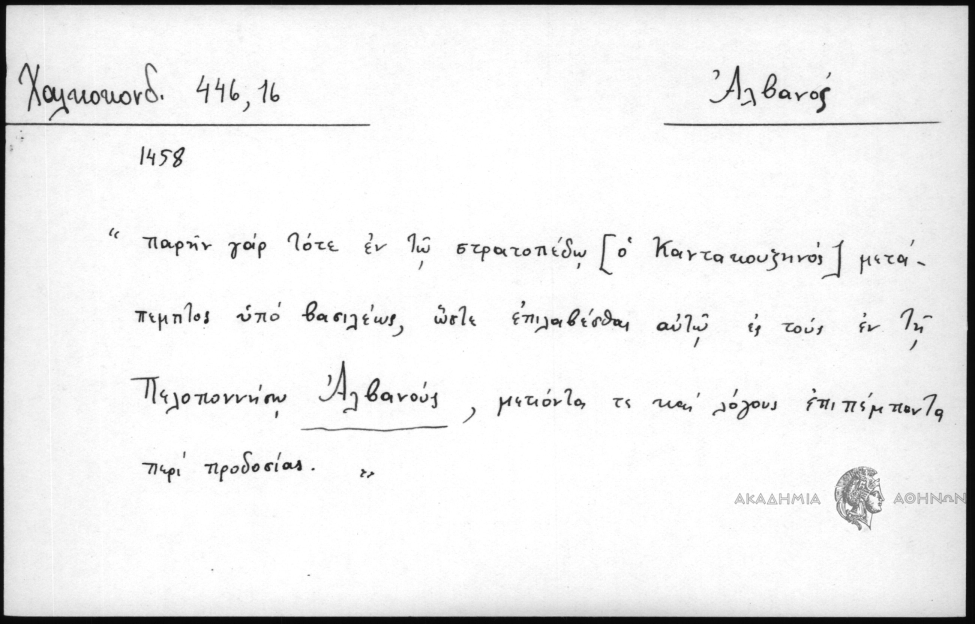 Χαλκοκονδ. 446, 16
Ἀλβανός
1458
“ παρῆν γάρ τότε ἐν τῷ στρατοπέδῳ [ὁ Καντακουζηνός] μετά-
πεμπτος ὑπό βασιλέως, ὥστε ἐπιλαβέσθαι αὐτῷ ἐς τούς ἐν τῇ
Πελοποννήσῳ Ἀλβανούς, μετιόντα τε καί λόγους ἐπιπέμποντα
περί προδοσίας. ”
ΑΚΑΔΗΜΙΑ ΑΘΗΝΩΝ